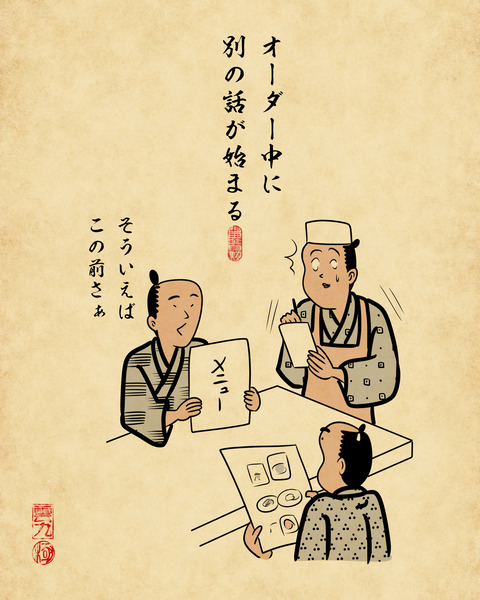 オーダー中に
別の話が始まる
そういえば
この前さぁ
メニュー